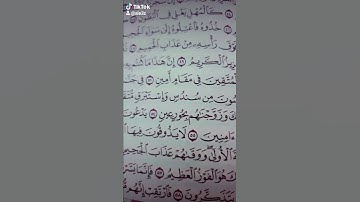 TikTok
كَالْمُهْلِ يَغْلِى فِى الْبُطُونِ
خُذُوهُ فَاعْتِلُوهُ إِلَىٰ سَوَاءِ
فَوْقَ رَأْسِهِ مِنْ عَذَابِ الْحَمِيمِ
الْكَرِيمُ ٤٩ إِنَّ هَٰذَا مَا كُنتُم
الْمُتَّقِينَ فِى مَقَامٍ أَمِينٍ ٥١ فِى
مِن سُندُسٍ وَإِسْتَبْرَقٍ
وَزَوَّجْنَٰهُم بِحُورٍ عِينٍ ٥٤ يَدْعُونَ
ءَامِنِينَ ٥٥ لَا يَذُوقُونَ فِيهَا
الْأُولَىٰ وَوَقَىٰهُمْ عَذَابَ الْجَحِيمِ
هُوَ الْفَوْزُ الْعَظِيمُ ٥٧ فَإِنَّمَا
يَتَذَكَّرُونَ ٥٨ فَارْتَقِبْ إِنَّهُم